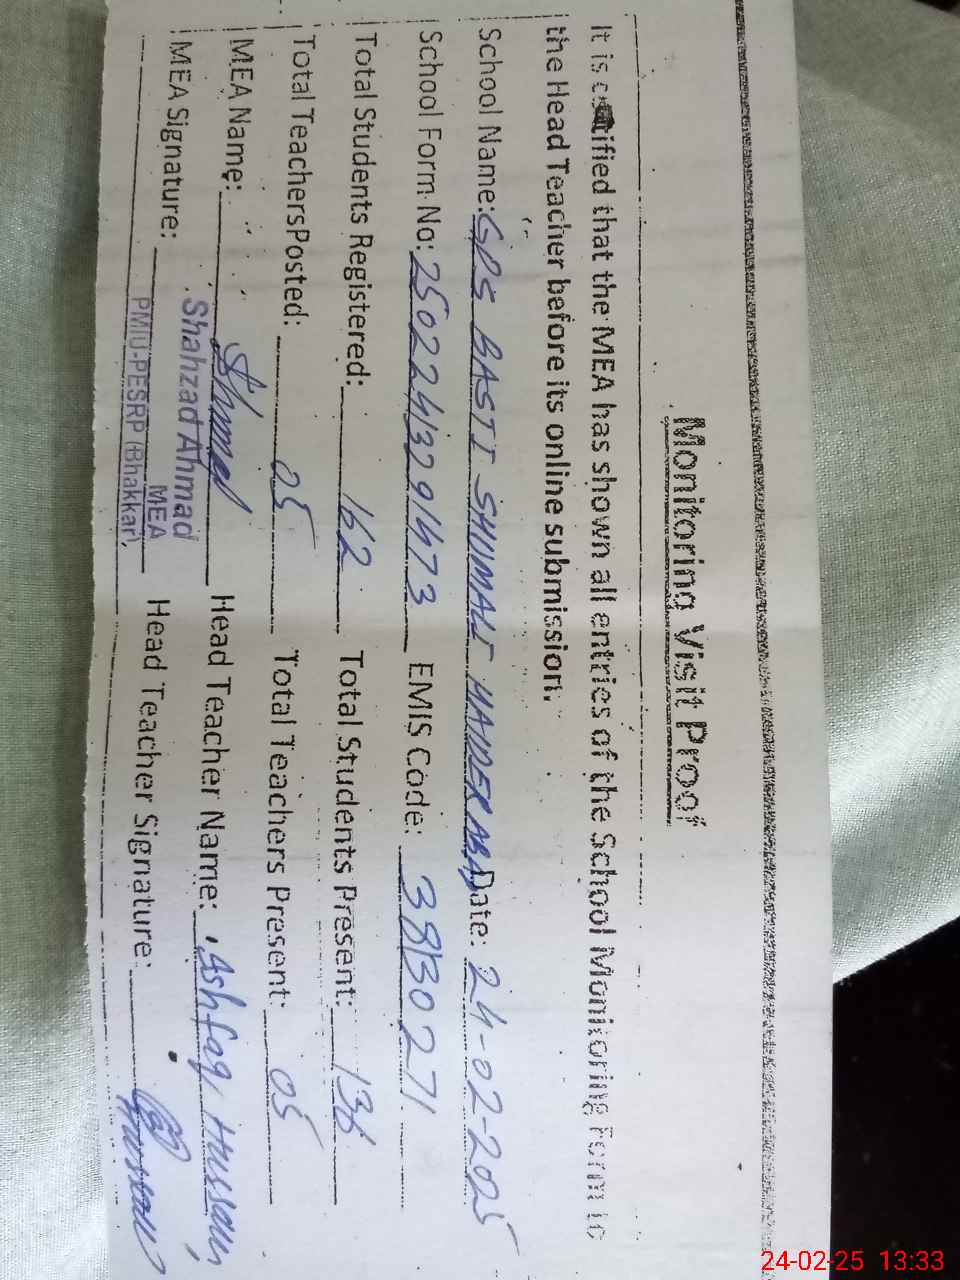 Monitoring Visit Proof
It is certified that the MEA has shown all entries of the School Monitoring Form to
the Head Teacher before its online submission.
School Name: GPS BASTI SHUMALI HAIDER ABAD Date: 24-02-2025
School Form No: 2502243291473 EMIS Code: 38130271
Total Students Registered: 162 Total Students Present: 136
Total TeachersPosted: 05 Total Teachers Present: 05
MEA Name: Ahmad Head Teacher Name: Ashfaq Hussain
MEA Signature: Shahzad Ahmad Head Teacher Signature: Hussain
MEA
PMIU-PESRP (Bhakkar),
24-02-25 13:33